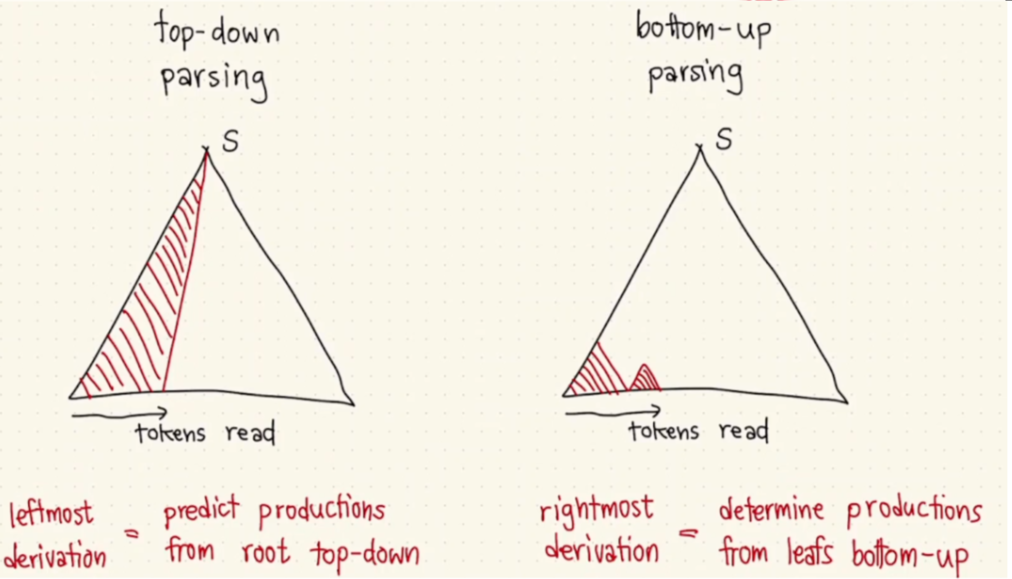 top-down
parsing
S
tokens read
leftmost
derivation
=
predict productions
from root top-down
bottom-up
parsing
S
tokens read
rightmost
derivation
=
determine productions
from leafs bottom-up